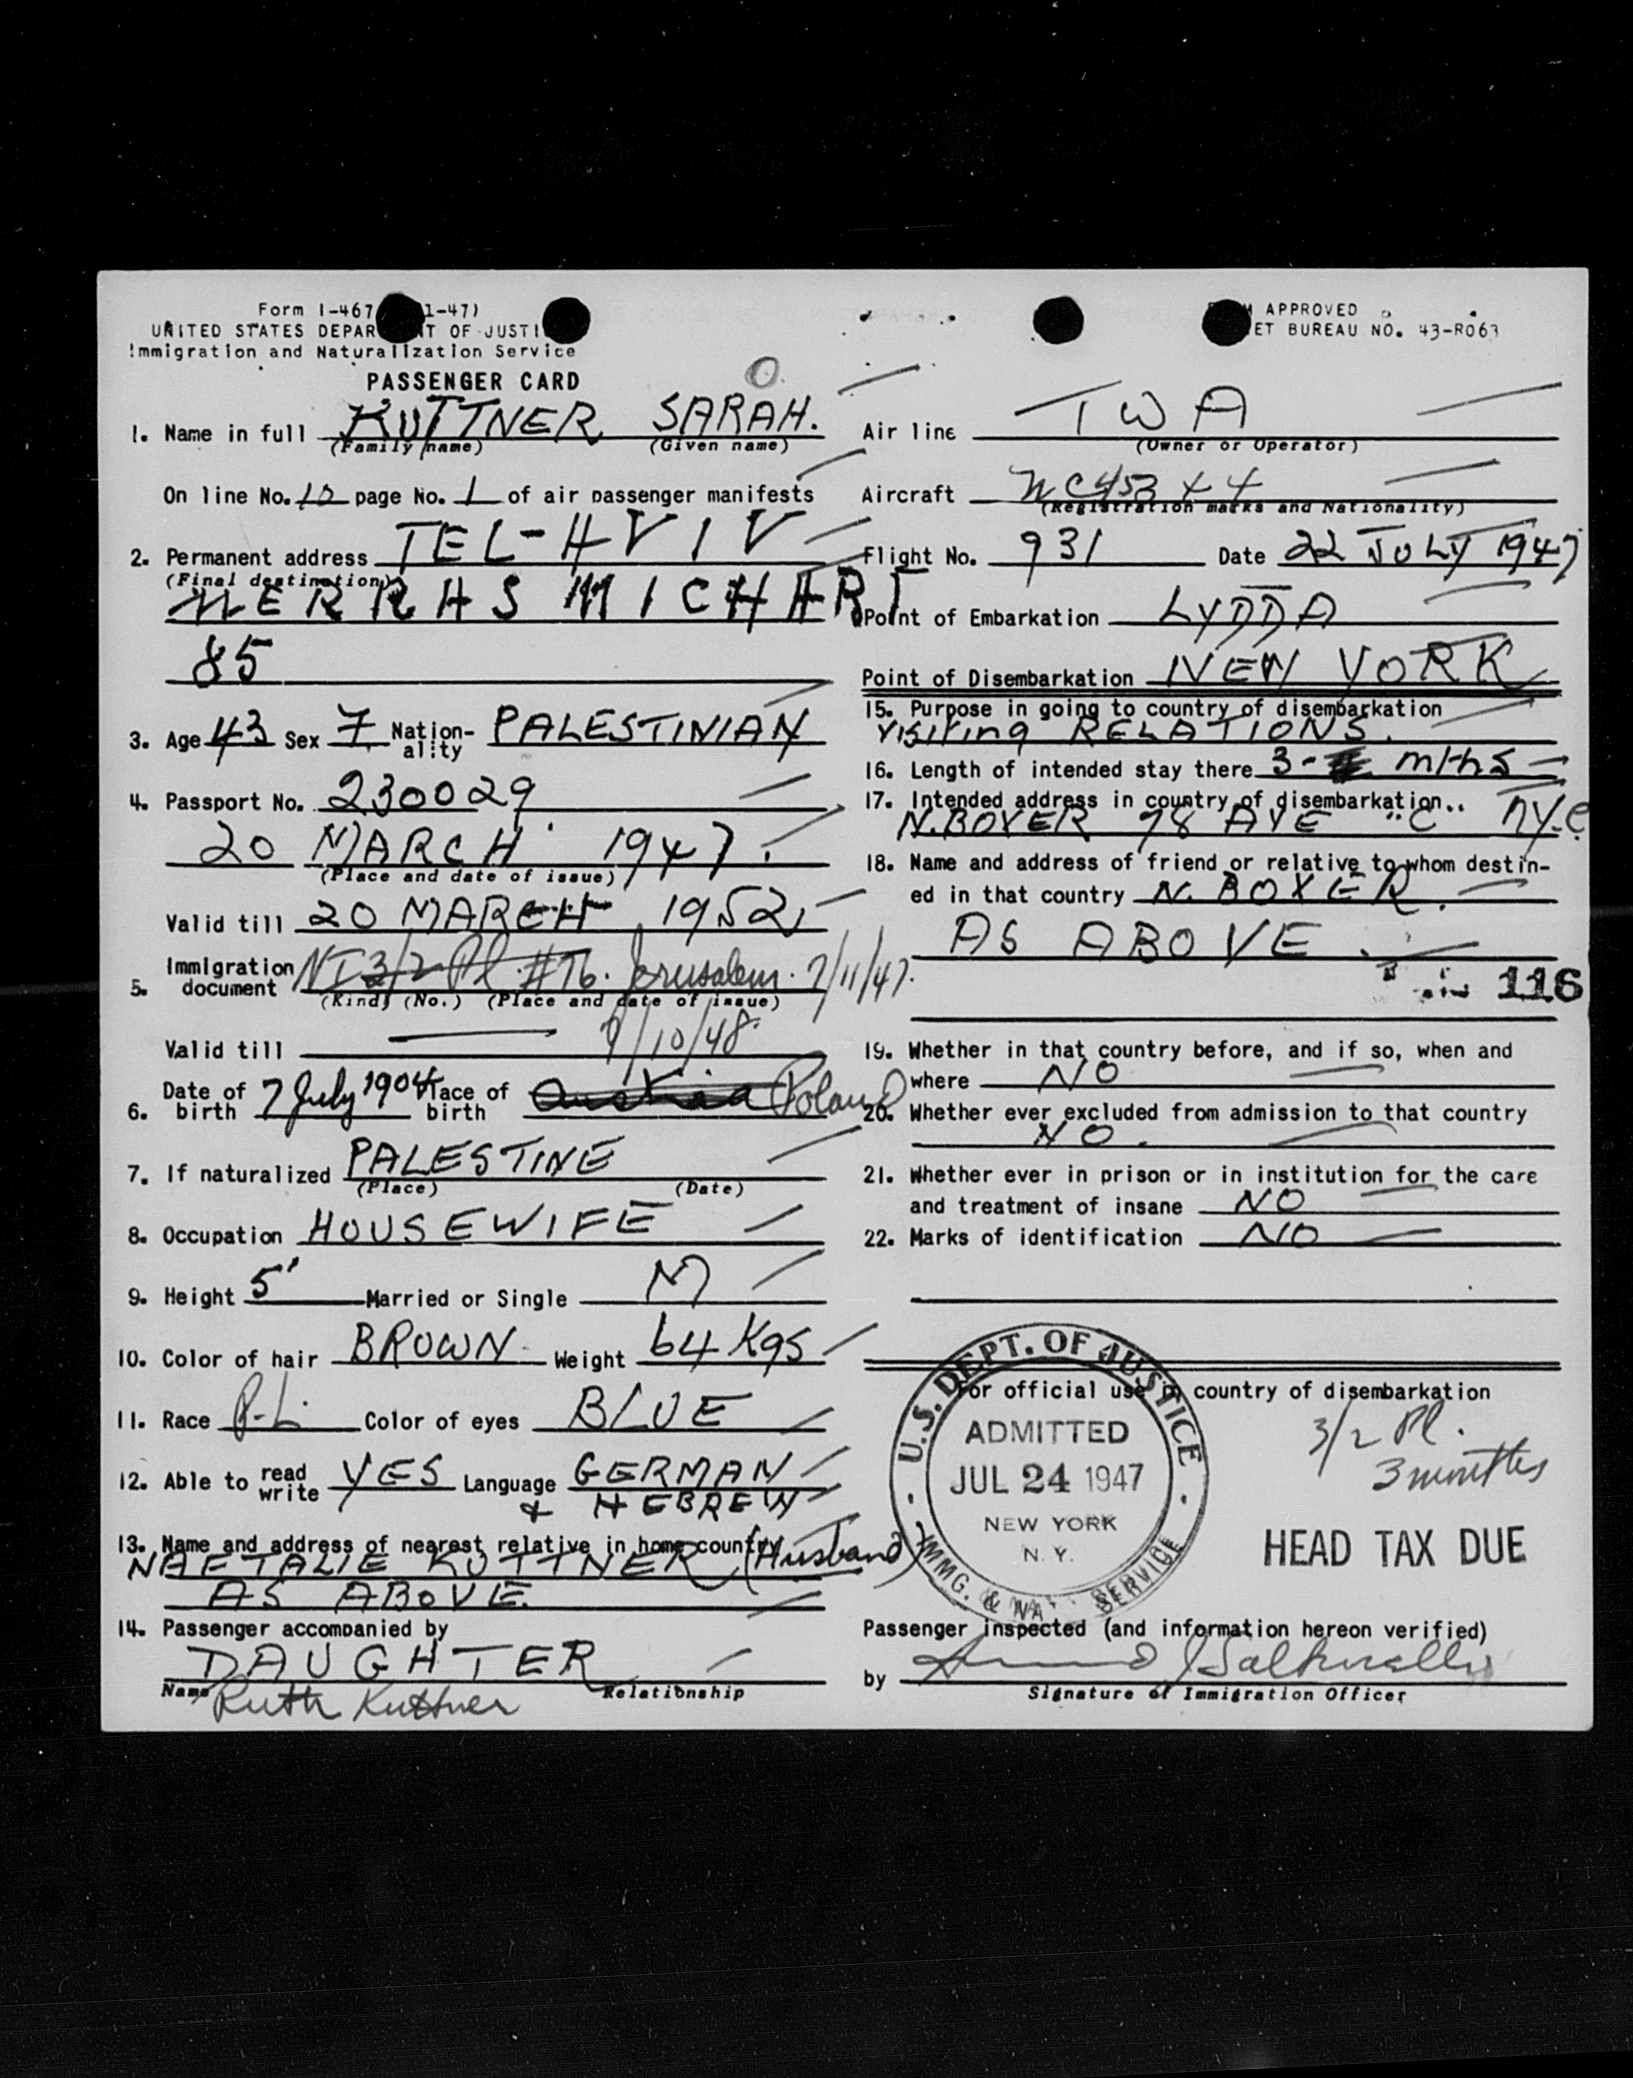 Form I-467 1-47)
UNITED STATES DEPAR NT OF JUSTI
Immigration and Naturalization Service
PASSENGER CARD
1. Name in full KUTTNER SARAH.
(Family name) (Given name)
On line No. 10 page No. 1 of air passenger manifests
2. Permanent address TEL-AVIV
(Final destination)
85
3. Age 43 Sex F. Nation-ality PALESTINIAN
4. Passport No. 230029
20 MARCH 1947.
(Place and date of issue)
Valid till 20 MARCH 1952,
5. Immigration document NI 3/2 Pl #76. Jerusalem. 7/11/47.
(Kind) (No.) (Place and date of issue)
Valid till 7/10/48.
6. Date of birth 7 July 1904 Place of birth Austria Poland
7. If naturalized PALESTINE
(Place) (Date)
8. Occupation HOUSEWIFE
9. Height 5' Married or Single M
10. Color of hair BROWN Weight 64 Kgs
11. Race Color of eyes BLUE
12. Able to read write YES Language GERMAN
& HEBREW
13. Name and address of nearest relative in home country
NAFTALIE KUTTNER (Husband)
AS ABOVE.
14. Passenger accompanied by
DAUGHTER
Name Relationship
Ruth Kuttner
M APPROVED
ET BUREAU NO. 43-R063
Air line TWA
(Owner or Operator)
Aircraft NC45344
(Registration marks and Nationality)
Flight No. 931 Date 22 JULY 1947
Point of Embarkation LYDDA
Point of Disembarkation NEW YORK
15. Purpose in going to country of disembarkation
Visiting RELATIONS.
16. Length of intended stay there 3- mths
17. Intended address in country of disembarkation..
N. BOXER 98 AVE "C" NY.C.
18. Name and address of friend or relative to whom destin-
ed in that country N. BOXER.
AS ABOVE.
116
19. Whether in that country before, and if so, when and
where NO
20. Whether ever excluded from admission to that country
NO.
21. Whether ever in prison or in institution for the care
and treatment of insane NO
22. Marks of identification NO
For official use in country of disembarkation
U.S. DEPT. OF JUSTICE
ADMITTED
JUL 24 1947
NEW YORK
N. Y.
IMMG. & NAT. SERVICE
3/2 Pl.
3 months
HEAD TAX DUE
Passenger inspected (and information hereon verified)
by
Signature of Immigration Officer